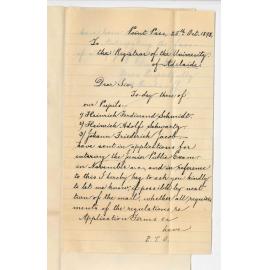 Point Pass, 25th Oct. 1898.
To
the Registrar of the University
of Adelaide
Dear Sir,
To-day three of
our Pupils
1) Heinrich Ferdinand Schmidt
2) Heinrich Adolf Schwartz
3) Johann Friedrich Jacob
have sent in applications for
entering the Junior Public Exam.
in November a.c., and in reference
to this I hereby beg to ask you kindly
to let me know, if possible by next
turn of the mail, whether all require
ments of the regulations re
Application forms ea
have
P. T. O.